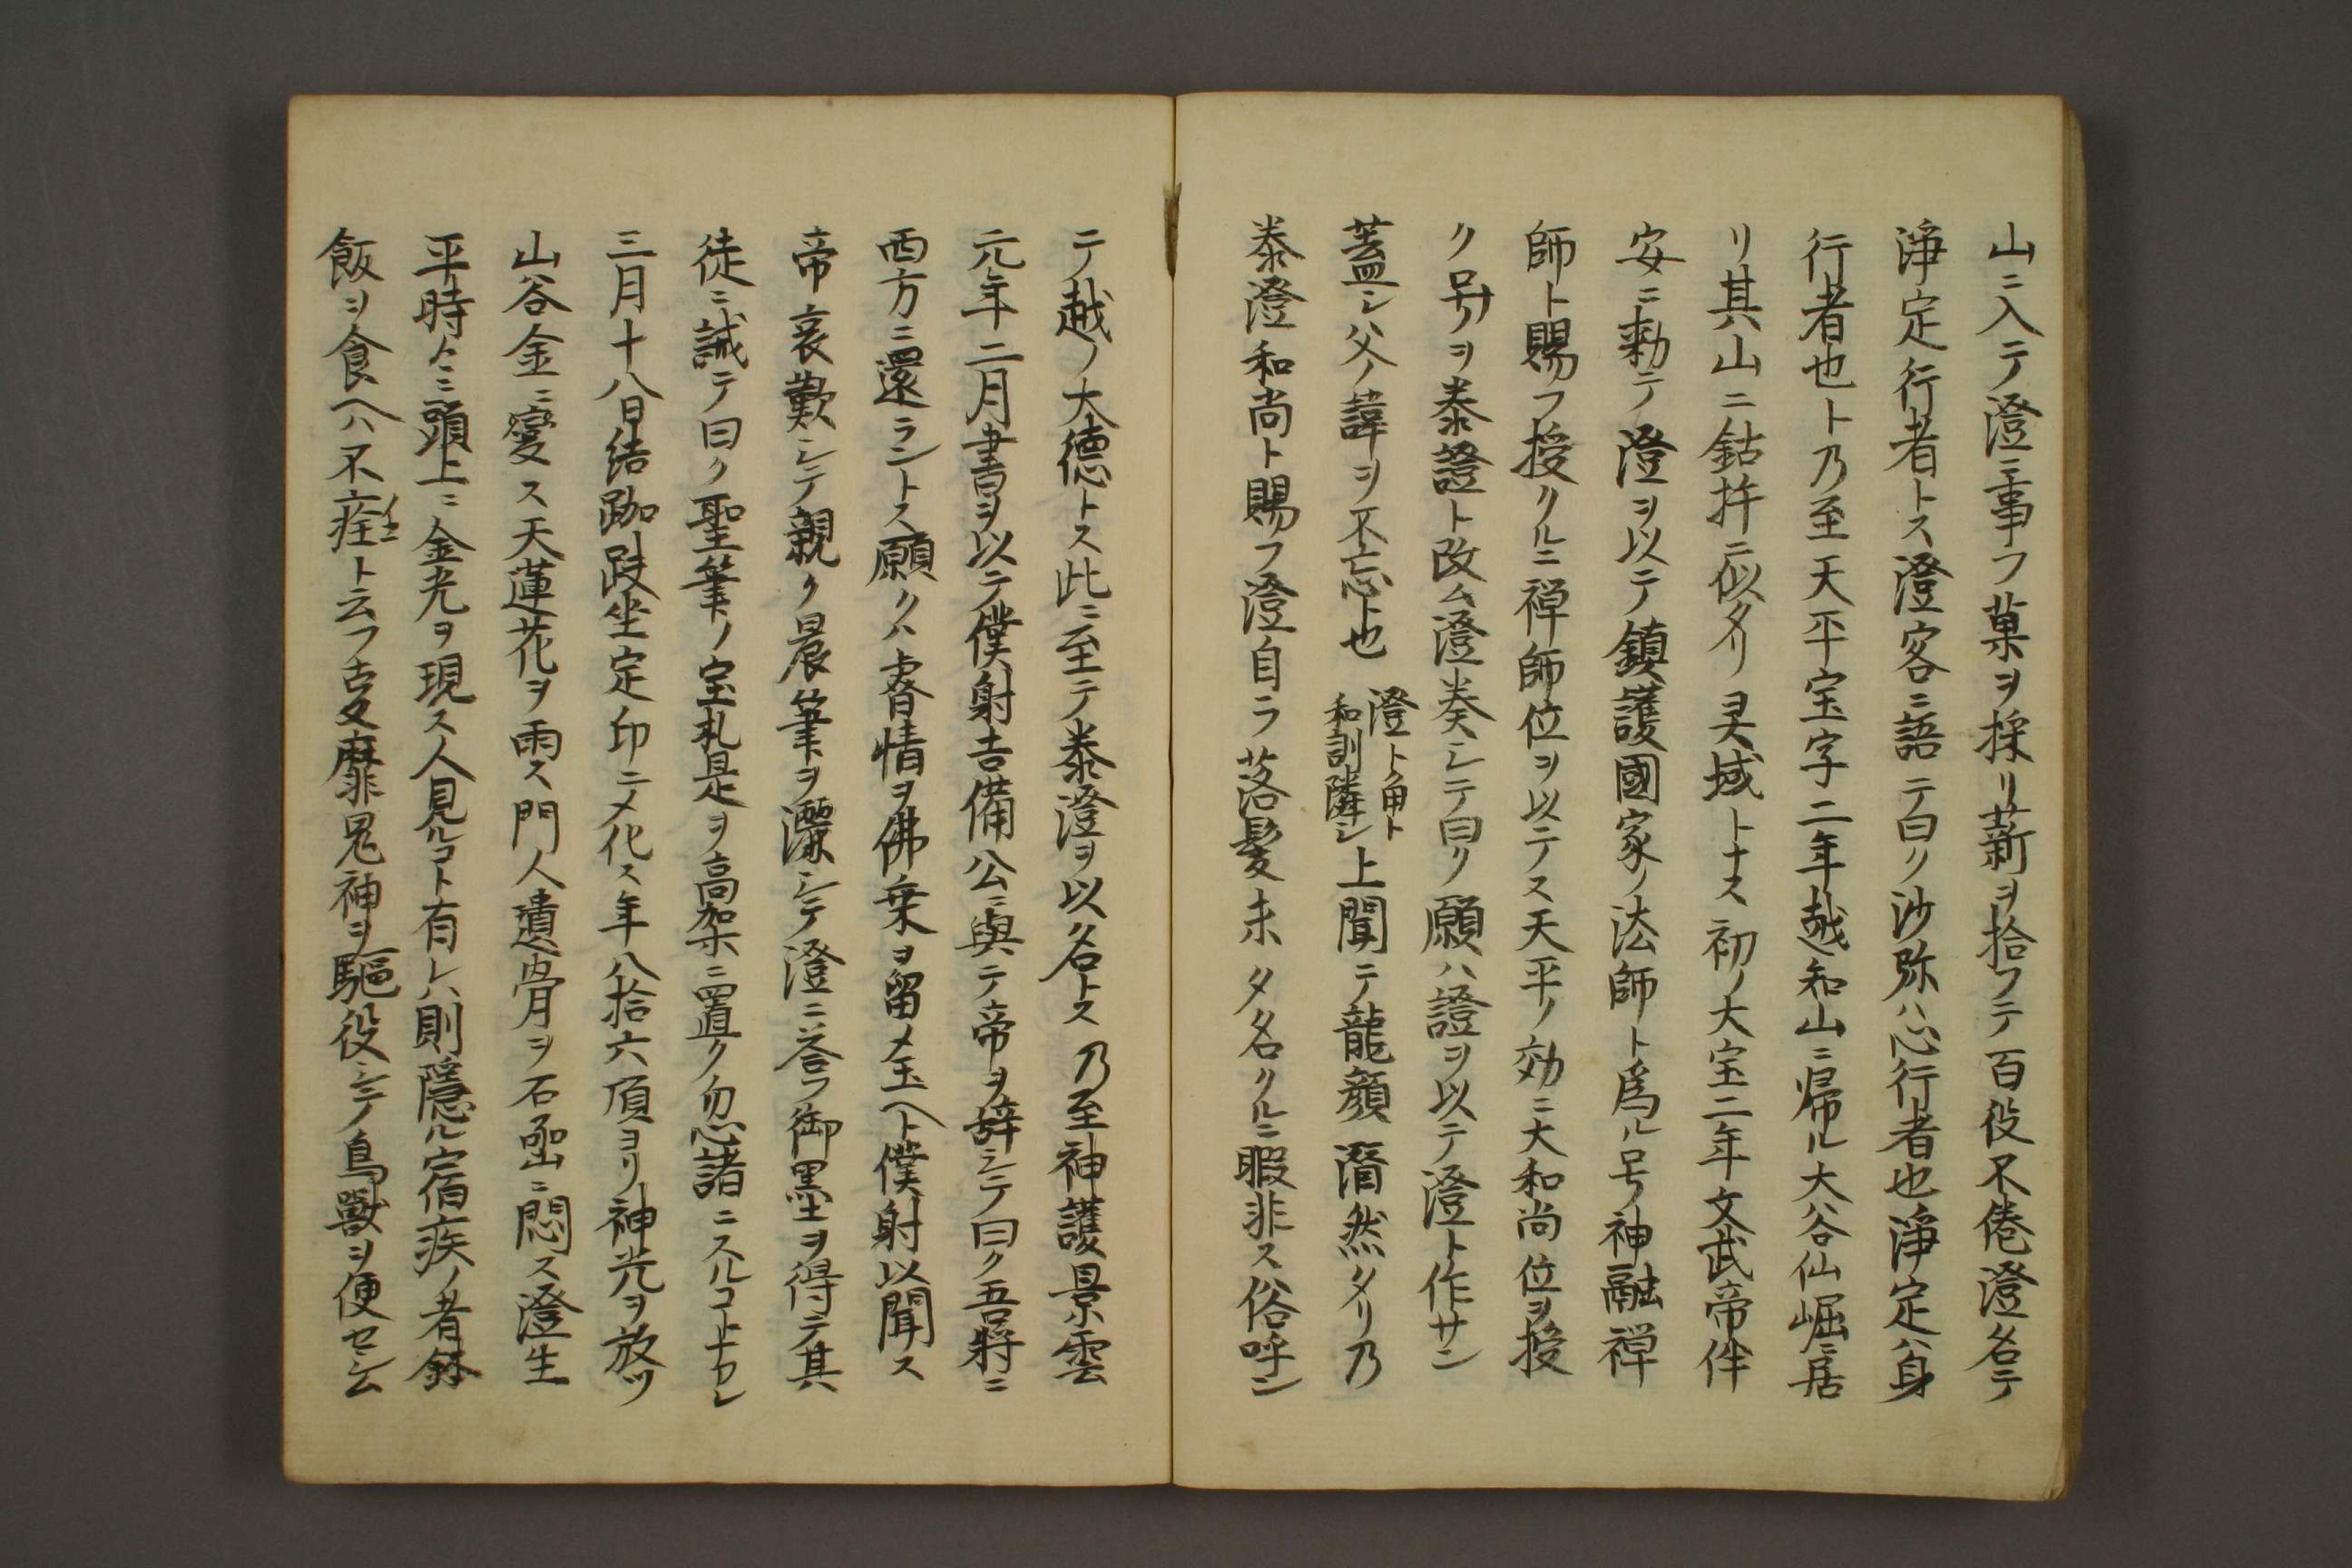 山ニ入テ澄ニ事フ菓ヲ採リ薪ヲ拾フテ百役不倦澄名テ
淨定行者トス澄客ニ語テ曰ク沙弥ハ心行者也淨定ハ身
行者也ト乃至天平宝字二年越知山ニ帰ル大谷仙崛ニ居
リ其山ニ鈷杵ニ似タリ灵域トナス初ノ大宝二年文武帝伴
安ニ勅テ澄ヲ以テ鎮護國家ノ法師ト爲ル号ノ神融禅
師ト賜フ授クルニ禅師位ヲ以テス天平ノ効ニ大和尚位ヲ授
ク号ヲ泰證ト改ム澄奏シテ曰ク願ハ證ヲ以テ澄ト作サン
蓋シ父ノ諱ヲ不忘ト也
澄ト角ト
和訓隣シ
上聞テ龍顔潸然タリ乃
泰澄和尚ト賜フ澄自ラ落髪未タ名クルニ暇非ス俗呼ン
テ越ノ大德トス此ニ至テ泰澄ヲ以名トス乃至神護景雲
元年二月書ヲ以テ僕射吉備公ニ與テ帝ヲ辞シテ曰ク吾將ニ
西方ニ還ラントス願クハ睿情ヲ佛乗ヲ留メ玉ヘト僕射以聞ス
帝哀歎シテ親ク晨筆ヲ灑シテ澄ニ答フ御墨ヲ得テ其
徒ニ誡テ曰ク聖筆ノ宝札是ヲ高架ニ置ク勿忽諸ニスルコトナカレ
三月十八日結跏趺坐定印ニメ化ス年八拾六頂ヨリ神光ヲ放ツ
山谷金ニ變ス天蓮花ヲ雨ス門人遺骨ヲ石凾ニ悶ス澄生
平時々ニ頭上ニ金光ヲ現ス人見ルコト有レハ則隠ル宿疾ノ者鉢
飯ヲ食ヘハ不痊ト云フ靡鬼神ヲ驅役シテ鳥獸ヲ便セシム